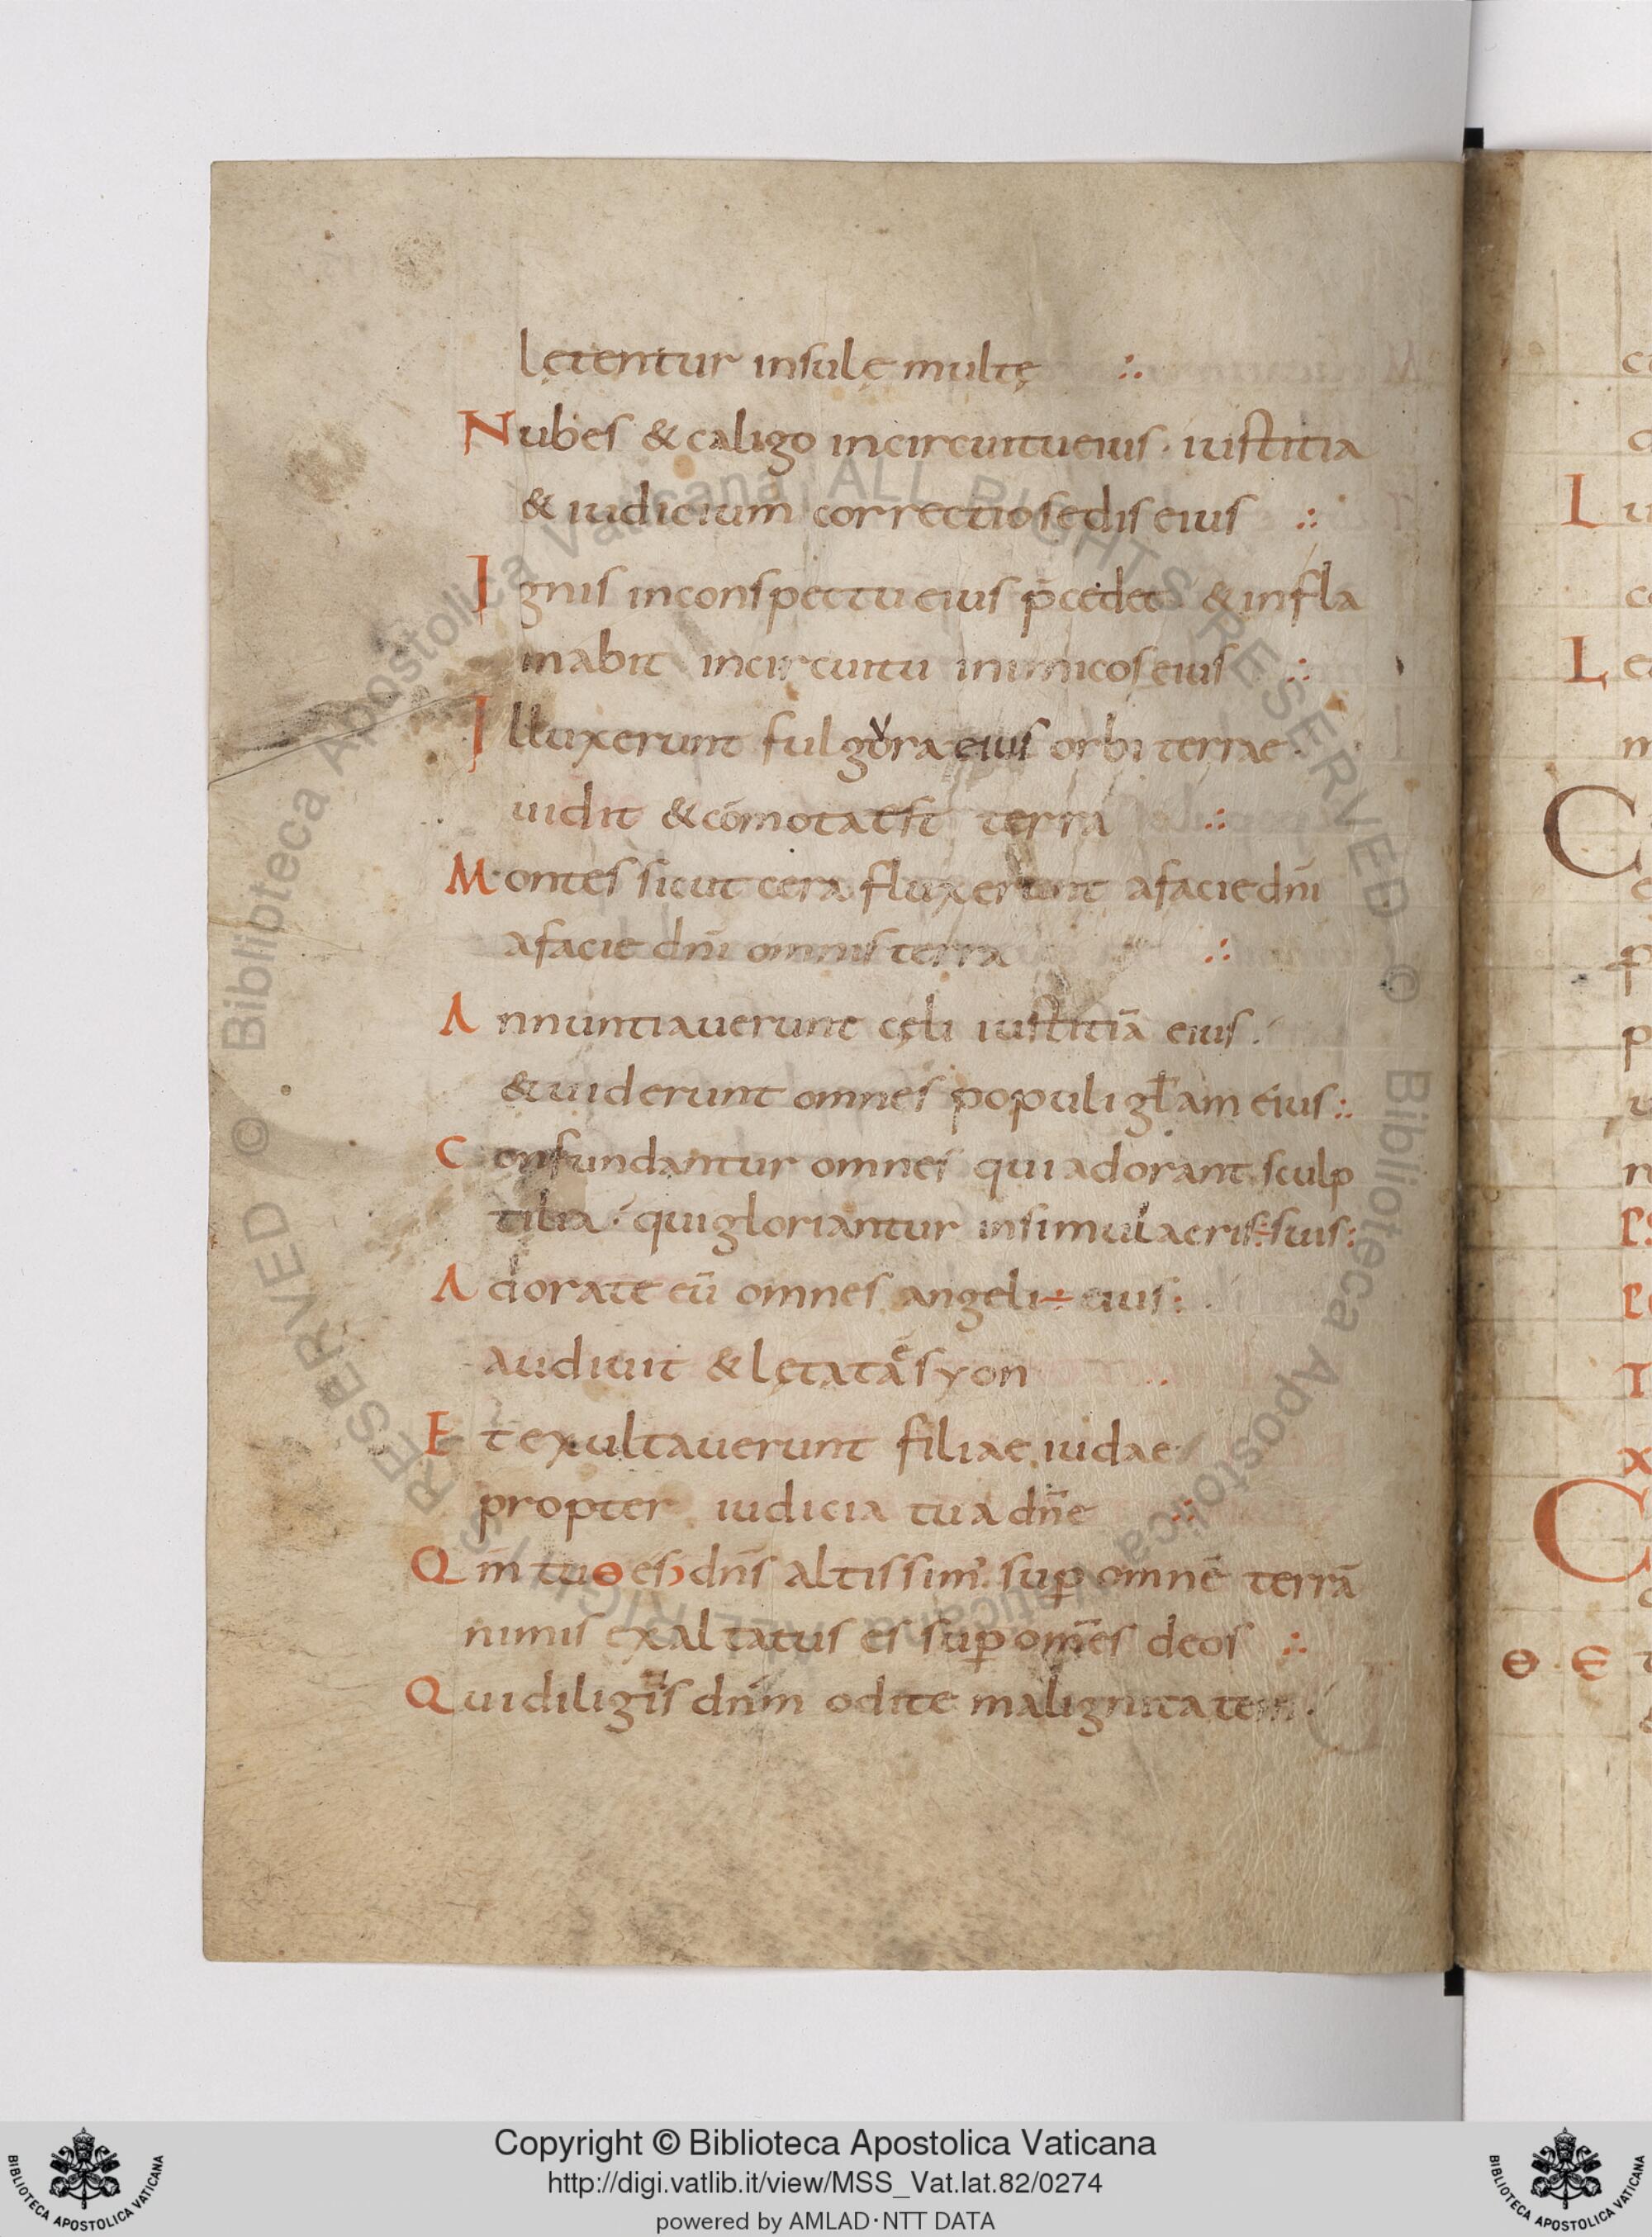 lętentur insulę multę ∴
Nubes & caligo incircuitueius · iustitia
& iudicium correctiosedis eius ∴
Ignis inconspectu eius p̄cedet & infla
mabit incircuitu inimicoseius ∴
Illuxerunt fulgora eius orbi terrae ·
uidit & cōmotaest terra ∴
Montes sicut cera fluxerunt afaciedn̄i
afacie dn̄i omnis terra ∴
Annuntiauerunt cęli iustitiā eius .
& uiderunt omnes populi gl̄am eius ∴
Confundantur omnes qui adorant sculp
tilia · quigloriantur insimulacris ÷ suis :
Adorate eū omnes angeli ÷ eius :
audiuit & lętatāe syon
Et exultauerunt filiae iudae
propter iudicia tua dn̄e ∴
Qm̄ tu ɵ es dn̄s altissim' sup̄ omnē terrā
nimis exaltatus es sup̄ om̄es deos ∴
Quidiligitis dn̄m odite malignitatem ·
C
L
L
C
C
ɵ · E
Copyright © Biblioteca Apostolica Vaticana
http://digi.vatlib.it/view/MSS_Vat.lat.82/0274
powered by AMLAD·NTT DATA
BIBLIOTECA APOSTOLICA VATICANA
BIBLIOTECA APOSTOLICA VATICANA
© Biblioteca Apostolica Vaticana ALL RIGHTS RESERVED
© Biblioteca Apostolica Vaticana ALL RIGHTS RESERVED